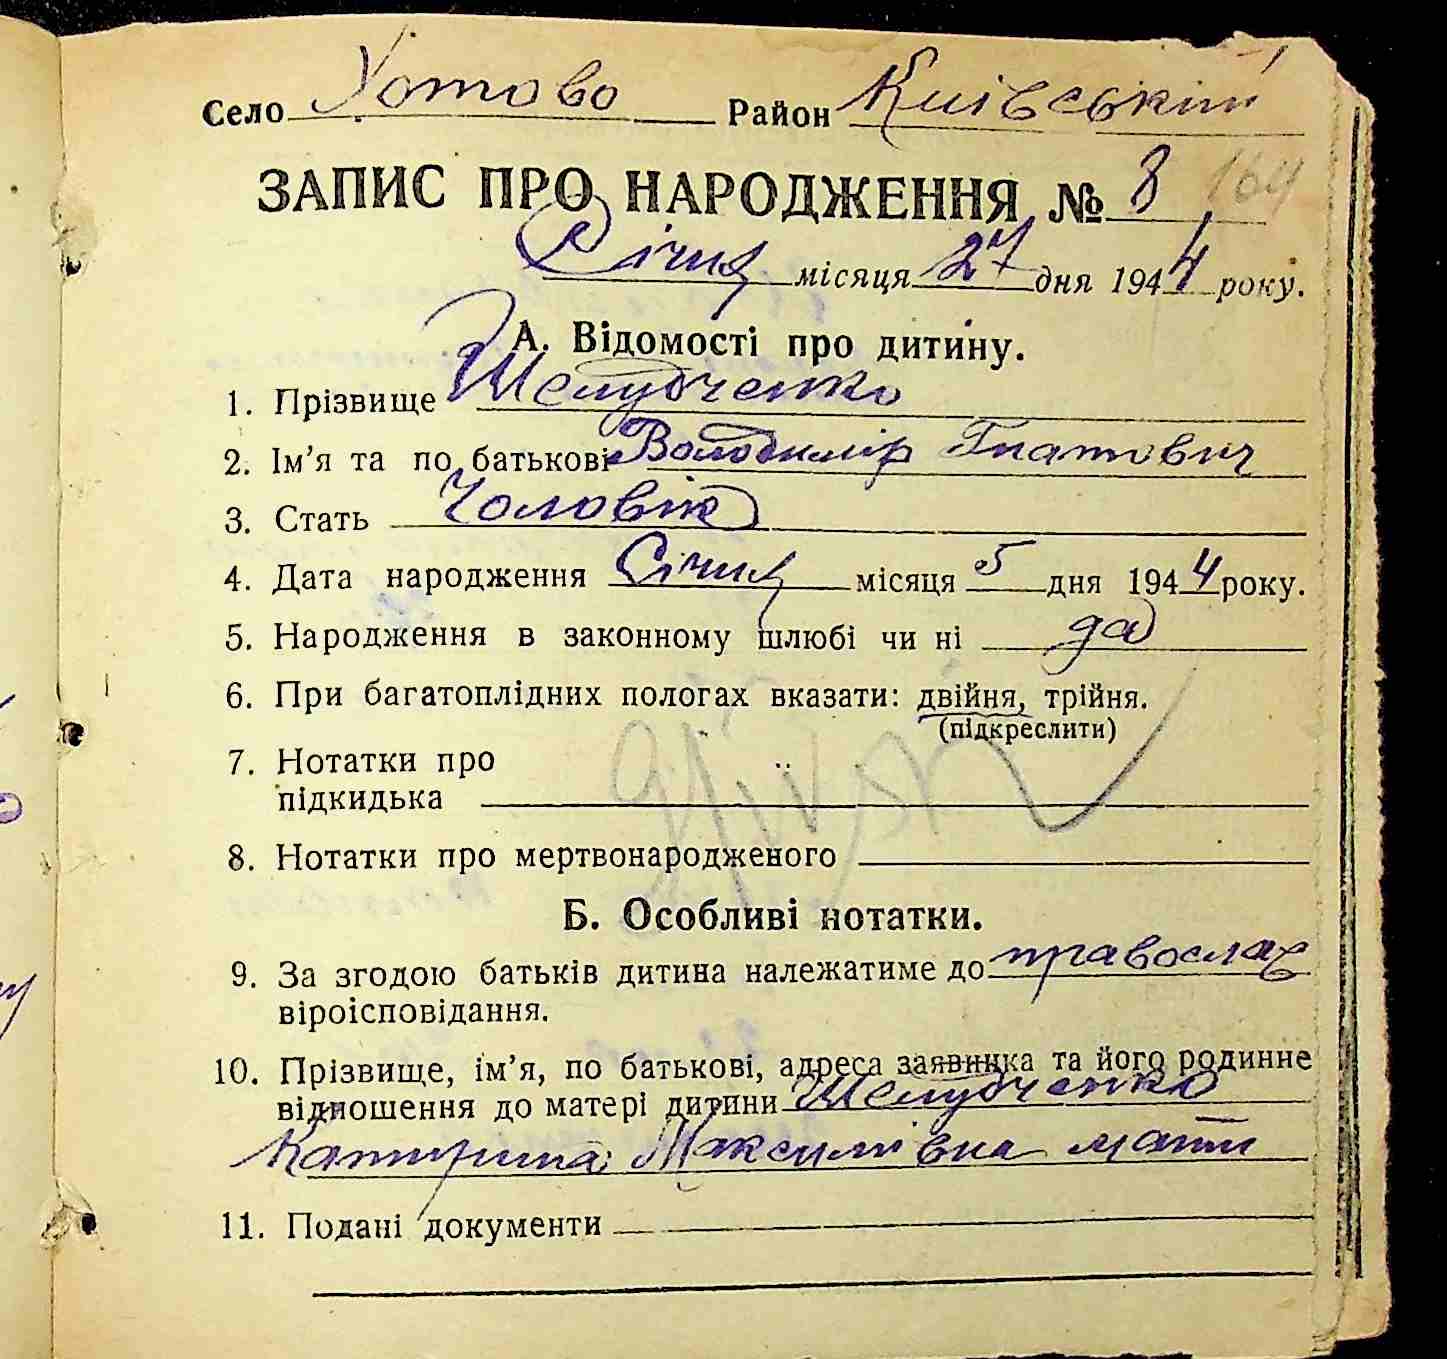 Село Хотово Район Київський
ЗАПИС ПРО НАРОДЖЕННЯ № 8 164
Січня місяця 27 дня 1944 року.
А. Відомості про дитину.
1. Прізвище Шелудченко
2. Ім'я та по батькові Володимір Гнатович
3. Стать Чоловік
4. Дата народження Січня місяця 5 дня 1944 року.
5. Народження в законному шлюбі чи ні да
6. При багатоплідних пологах вказати: двійня, трійня.
(підкреслити)
7. Нотатки про
підкидька
8. Нотатки про мертвонародженого
Б. Особливі нотатки.
9. За згодою батьків дитина належатиме до православ
віроісповідання.
10. Прізвище, ім'я, по батькові, адреса заявника та його родинне
відношення до матері дитини Шелудченко
Катирина Максимівна мати
11. Подані документи